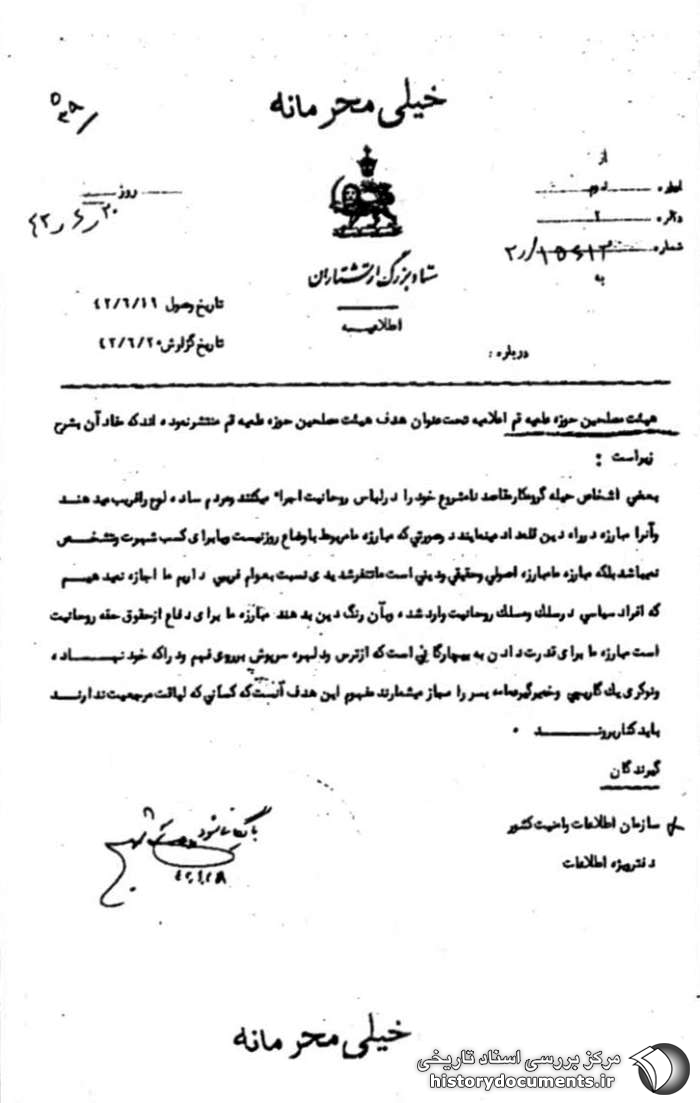 خیلی محرمانه
از
اداره دوم
دائره ۲
شماره
به
روز
۲۰ ر ۶ ر ۴۲
ستاد بزرگ ارتشتاران
اطلاعیه
تاریخ وصول ۴۲/۶/۱۹
تاریخ گزارش ۴۲/۶/۲۰
درباره :
هیئت مصلحین حوزه علمیه قم اعلامیه تحت عنوان هدف هیئت مصلحین حوزه علمیه قم منتشر نموده اند که مفاد آن بشرح
زیر است :
بعضی اشخاص حیله گر و مکار مقاصد نامشروع خود را در لباس روحانیت اجرا میکنند و مردم ساده لوح را فریب میدهند
و آنرا مبارزه در راه دین قلمداد مینمایند در صورتی که مبارزه ما مربوط باوضاع روز نیست و یا برای کسب شهرت و تشخص
نمیباشد بلکه مبارزه ما مبارزه اصولی و حقیقی و دینی است ما تنفر شدیدی نسبت بعوام فریبی داریم ما اجازه نمیدهیم
که افراد سیاسی در سلك و مسلك روحانیت وارد شده و بآن رنگ دین بدهند مبارزه ما برای دفاع از حقوق حقه روحانیت
است مبارزه ما برای قدرت دادن به بیچارگانی است که از ترس و دلهره سرپوش بر روی فهم و درك خود نهاده
و نوکری یك گاریچی و خمیرگیر را مجاز میشمارند مفهوم این هدف آنست که کسانی که لیاقت مرجعیت ندارند
باید کنار بروند .
گیرندگان
سازمان اطلاعات و امنیت کشور
دفتر ویژه اطلاعات
بایگانی شود
خیلی محرمانه
مرکز بررسی اسناد تاریخی
historydocuments.ir